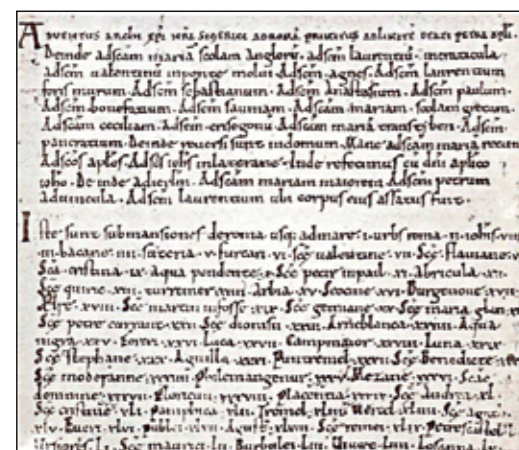 Adventus archiepi nri Sigerici ad romā primitus ad limitē beati petri apłi.
Deinde ad scam mariā scolam anglorū. ad scm laurentiū. in craticula
ad scm ualentinū in ponte molui. Ad scm agnes. Ad scm laurentium
foris murum. Ad scm sebastianum. Ad scm anastasium. Ad scm paulum.
Ad scm bonefatium. Ad scm sauinam. Ad scam mariam. scolam grecam.
Ad scam ceciliam. Ad scm crisogonū. Ad scam mariā transtyberi. Ad scm
pancratium. Deinde reuersi sunt in domum. Mane ad scam mariā rotun
Ad scos apłos. Ad scm iohs in laterane. Inde refecimus cu dn apłico
ioho. Deinde ad ierłm. Ad scam mariam maiorem. Ad scm petrum
ad uincula. Ad scm laurentium ubi corpus eius assatus fuit.
Iste sunt submansiones de roma usq; ad mare. i. urbs roma. ii. iohis. viiii
iii. bacane. iiii. suteria. v. furcari. vi. Sce ualentine. vii. Sce flauiane. viii
Sca cristina. ix. Aqua pendente. x. Sce petir in pail. xi. Abricula. xii.
Sce quiric. xiii. turreiner. xiiii. Arbia. xv. Seocine. xvi. Burgenoue. xvii.
Ælse. xviii. Sce martin in fosse. xix. Sce gemiane. xx. Sce maria glan. xxi
Sce petre currant. xxii. Sce dionisii. xxiii. Arneblanca. xxiiii. Aqua
nigra. xxv. Forcri. xxvi. Luca. xxvii. Campmaior. xxviii. Luna. xxix
Sce stephane. xxx. Aguilla. xxxi. Puntremel. xxxii. Sce benedicte.
Sce moderanne. xxxiiii. Philemangenur. xxxv. Mezane. xxxvi. Scæ
domnine. xxxvii. Floricum. xxxviii. Placentia. xxxix. Sce Andrea. xl
Sce cristine. xli. Pamphica. xlii. Tremel. xliii. Vercel. xliiii. Sce agath
xlv. Everi. xlvi. Publei. xlvii. Agusta. xlviii. Sce remei. xlix. Petrescastel. l
Ursiores. li. Sce maurici. lii. Burbulei. liii. Vivæc. liiii. Losanna.